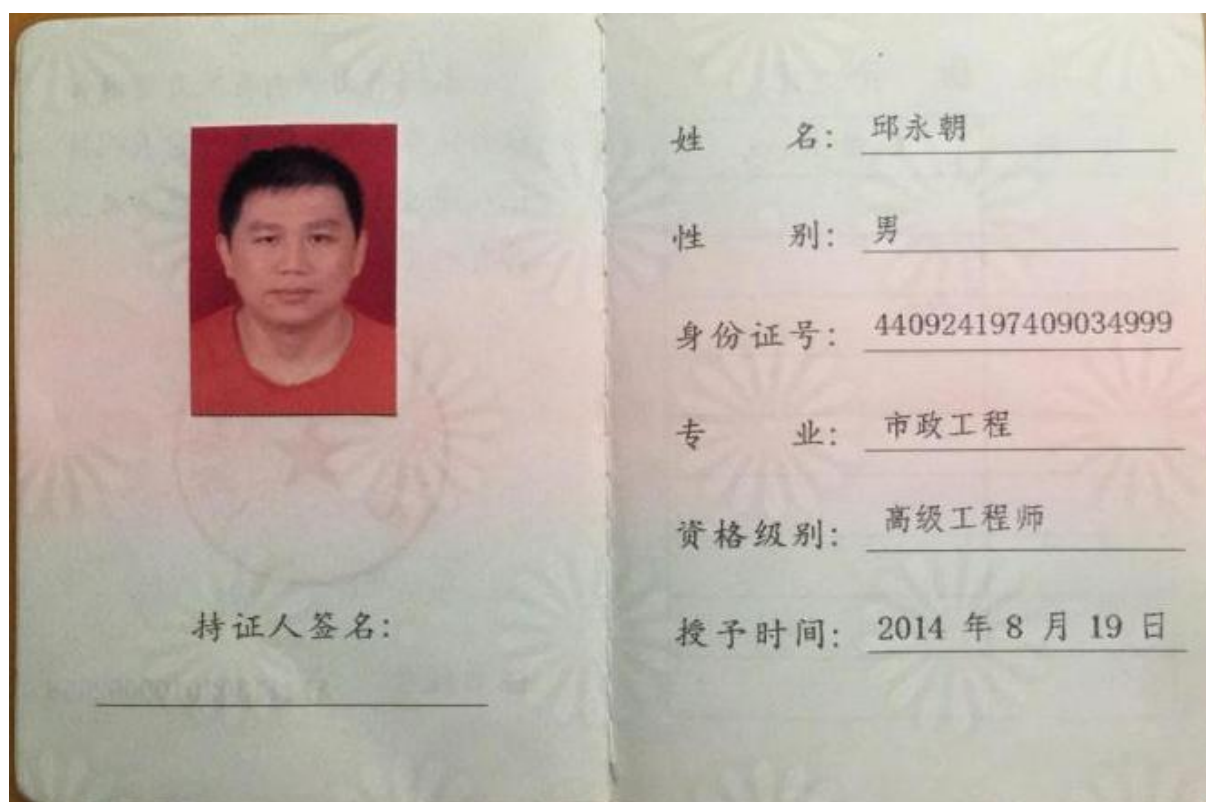 持证人签名:
姓 名: 邱永朝
性 别: 男
身份证号: 440924197409034999
专 业: 市政工程
资格级别: 高级工程师
授予时间: 2014 年 8 月 19 日